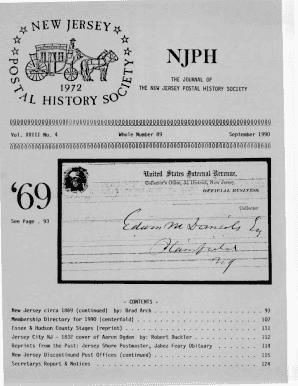 NEW JERSEY
POSTAL HISTORY SOCIETY
1972
NJPH
THE JOURNAL OF
THE NEW JERSEY POSTAL HISTORY SOCIETY
Vol. XVIII No. 4 Whole Number 89 September 1990
'69
See Page . 93
United States Internal Revenue,
Collector's Office, 3d District, New Jersey.
OFFICIAL BUSINESS.
Collector
Edwin M Daniels Esq
Plainfield
NJ
- CONTENTS -
New Jersey circa 1869 (continued) by: Brad Arch 93
Membership Directory for 1990 (centerfold) 107
Essex & Hudson County Stages (reprint) 111
Jersey City NJ - 1832 cover of Aaron Ogden by: Robert Buckler 112
Reprints from the Past: Jersey Shore Postmaster, Jabez Feary Obituary 114
New Jersey Discontinued Post Offices (continued) 115
Secretarys Report & Notices 124